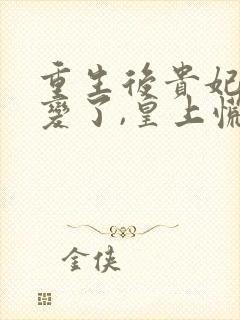 重生後貴妃
變了,皇上慌
金俠